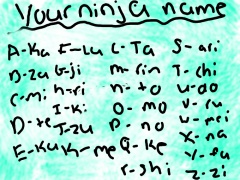 Your ninja name
A-Ka F-Lu L-Ta S-ari
B-zu G-ji m-rin T-chi
C-mi h-ri n-to U-do
D-te I-Ki O-mo V-ru
E-Ku J-zu P-no W-mei
K-me Q-Ke X-na
r-shi Y-fu
Z-zi